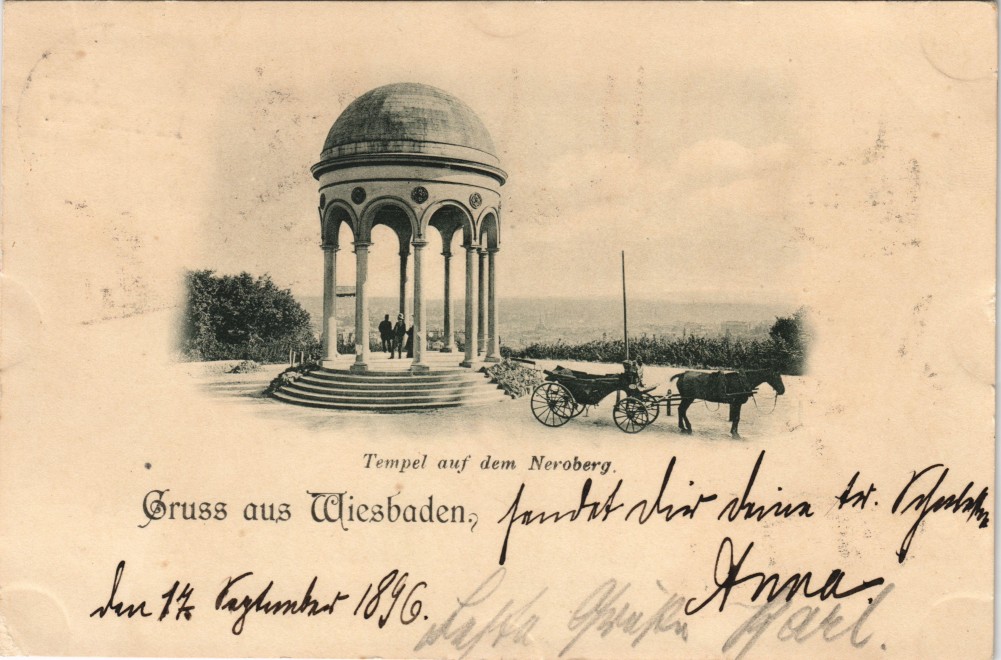 Tempel auf dem Neroberg.
Gruss aus Wiesbaden, sendet Dir deine tr. Schwester
Anna.
den 17. September 1896.
Beste Grüße Karl.